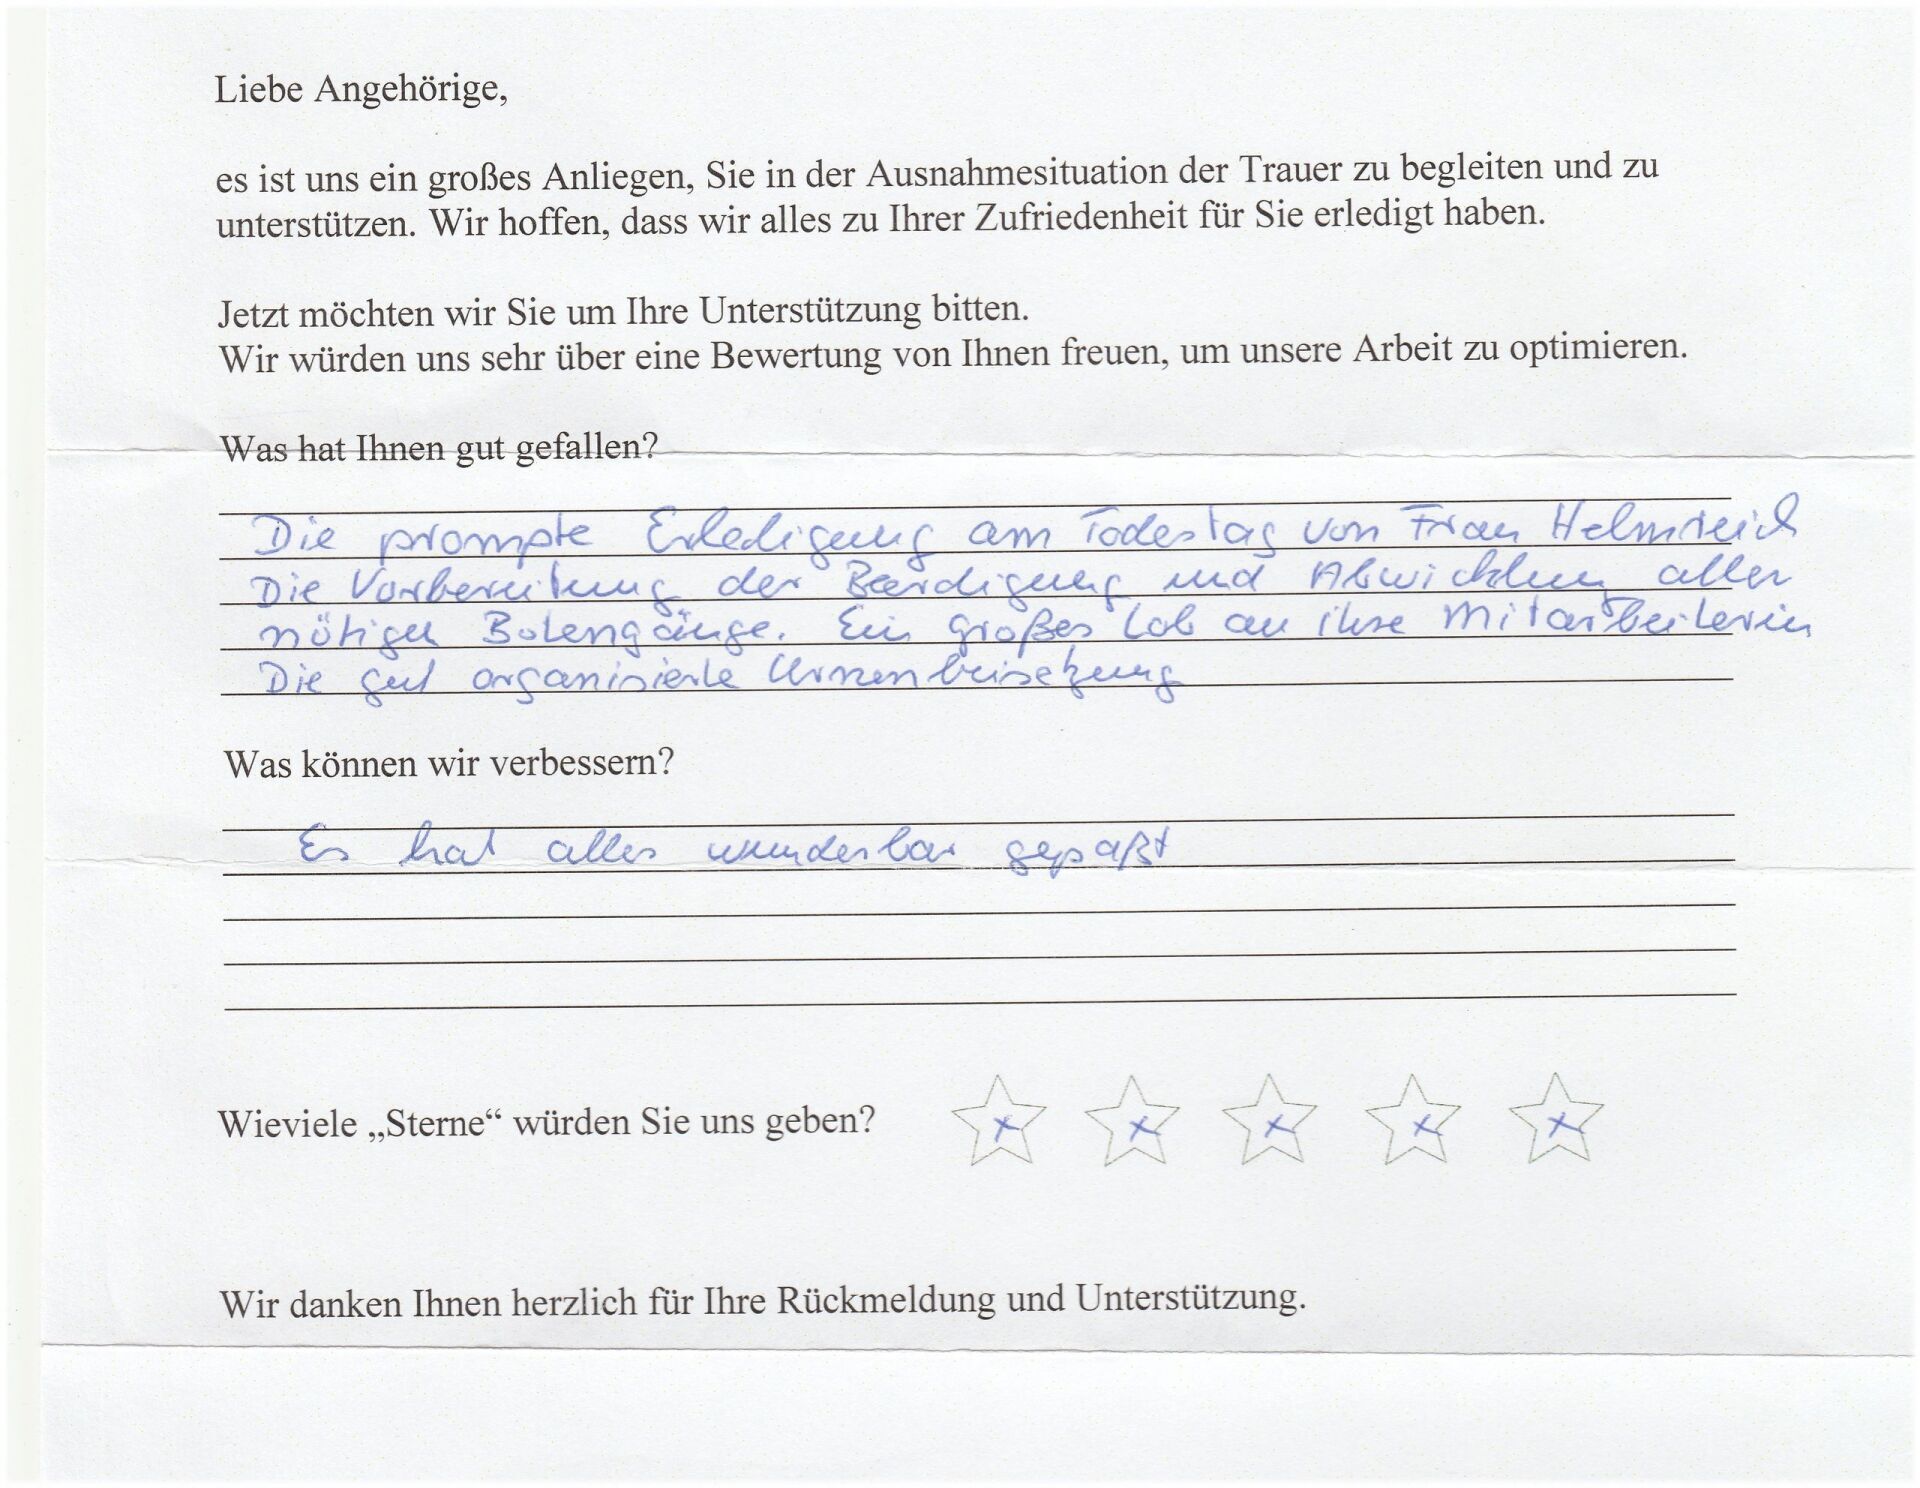 Liebe Angehörige,
es ist uns ein großes Anliegen, Sie in der Ausnahmesituation der Trauer zu begleiten und zu
unterstützen. Wir hoffen, dass wir alles zu Ihrer Zufriedenheit für Sie erledigt haben.
Jetzt möchten wir Sie um Ihre Unterstützung bitten.
Wir würden uns sehr über eine Bewertung von Ihnen freuen, um unsere Arbeit zu optimieren.
Was hat Ihnen gut gefallen?
Die prompte Erledigung am Todestag von Frau Helmreich
Die Vorbereitung der Beerdigung und Abwicklung aller
nötigen Botengänge. Ein großes Lob an ihre Mitarbeiterin
Die gut organisierte Urnenbeisetzung
Was können wir verbessern?
Es hat alles wunderbar gepaßt
Wieviele „Sterne“ würden Sie uns geben? x x x x x
Wir danken Ihnen herzlich für Ihre Rückmeldung und Unterstützung.